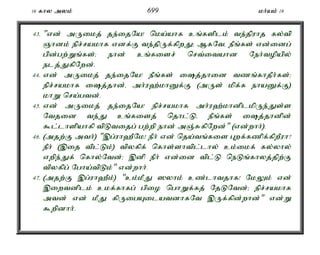 16 கால அலம் 699 மர்யம் 19
43. "என் அருமைத் தந்தையே! மெய்யாக உங்களிடம் வந்திராத கல்வி
ஞானம் நிச்சயமாக எனக்கு வந்திருக்கிறது; ஆகவே நீங்கள் என்னைப்
பின்பற்றுங்கள்; நான் உங்களைச் செவ்வையான நேர்வழியில்
நடத்துகிறேன்.
44. என் அருமைத் தந்தையே! நீங்கள் ஷைத்தானை வணங்காதீர்கள்;
நிச்சயமாக ஷைத்தான், அர்ரஹ்மானுக்கு (அருள் மிக்க நாயனுக்கு)
மாறு செய்பவன்.
45. என் அருமைத் தந்தையே! நிச்சயமாக அர்ரஹ்மானிடமிருந்துள்ள
வேதனை வந்து உங்களைத் தொட்டு, நீங்கள் ஷைத்தானின்
கூட்டாளியாகி விடுவதைப் பற்றி நான் அஞ்சுகிறேன்" (என்றார்).
46. (அதற்கு அவர்) "இப்ராஹீமே! நீர் என் தெய்வங்களை புறக்கணிக்கிறீரா?
நீர் (இதை விட்டும்) விலகிக் கொள்ளாவிட்டால் உம்மைக் கல்லால்
எறிந்துக் கொல்வேன்; இனி நீர் என்னை விட்டு நெடுங்காலத்திற்கு
விலகிப் போய்விடும்" என்றார்.
47. (அதற்கு இப்ராஹீம்) "உம்மீது ஸலாம் உண்டாவதாக! மேலும் என்
இறைவனிடம் உமக்காகப் பிழை பொறுக்கத் தேடுவேன்; நிச்சயமாக
அவன் என் மீது கிருபையுடையவனாகவே இருக்கின்றான்" என்று
கூறினார்.